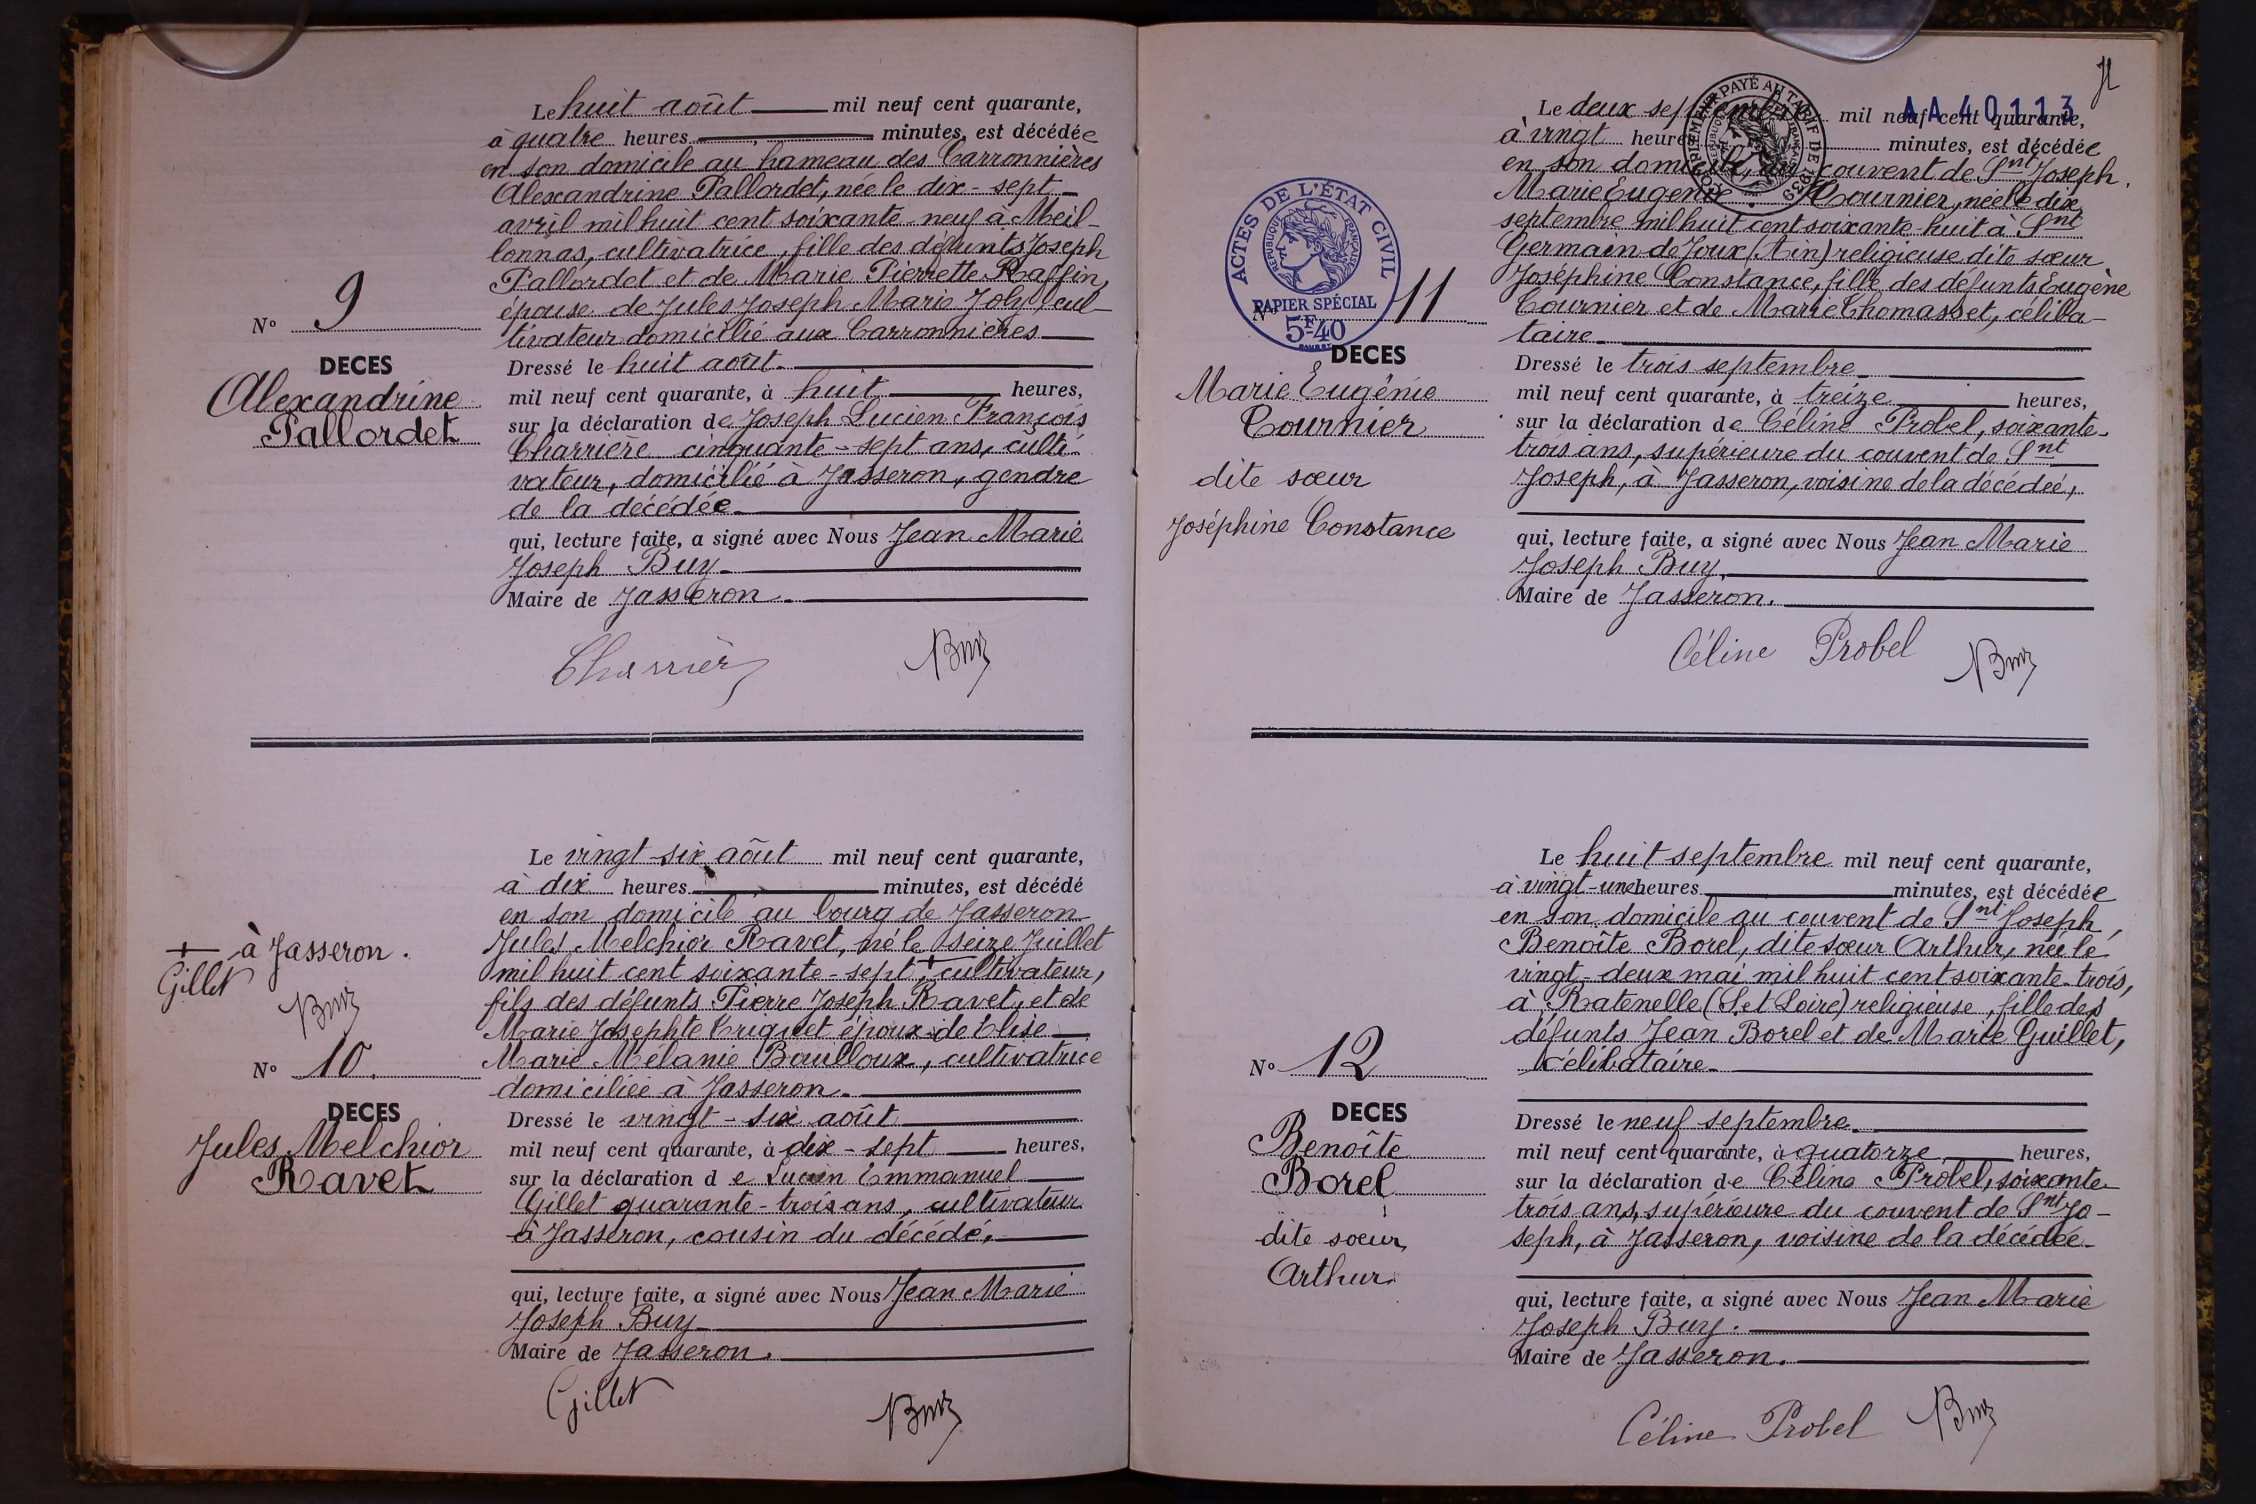 Le huit août mil neuf cent quarante,
à quatre heures minutes, est décédée
en son domicile au hameau des Carronnières
Alexandrine Pallordet, née le dix-sept
avril mil huit cent soixante-neuf à Meil-
lonnas, cultivatrice, fille des défunts Joseph
Pallordet et de Marie Pierrette Raffin,
épouse de Jules Joseph Marie Joly, cul-
tivateur domicilié aux Carronnières
N° 9
DECES
Alexandrine
Pallordet
Dressé le huit août.
mil neuf cent quarante, à huit heures,
sur la déclaration de Joseph Lucien François
Charrière cinquante-sept ans, culti-
vateur, domicilié à Jasseron, gendre
de la décédée
qui, lecture faite, a signé avec Nous Jean Marie
Joseph Buy
Maire de Jasseron.
Charrière Buy
Le vingt-six août mil neuf cent quarante,
à dix heures minutes, est décédé
en son domicile au bourg de Jasseron
Jules Melchior Ravet, né le seize Juillet
mil huit cent soixante-sept, + cultivateur,
fils des défunts Pierre Joseph Ravet, et de
Marie Josephte Criquet époux de Elise
Marie Mélanie Bouilloux, cultivatrice
domiciliée à Jasseron.
+ à Jasseron.
Gillet
Buy
N° 10.
DECES
Jules Melchior
Ravet
Dressé le vingt-six août
mil neuf cent quarante, à dix-sept heures,
sur la déclaration de Lucien Emmanuel
Gillet quarante-trois ans, cultivateur
à Jasseron, cousin du décédé,
qui, lecture faite, a signé avec Nous Jean Marie
Joseph Buy
Maire de Jasseron.
Gillet Buy
AA 40113
Le deux septembre mil neuf cent quarante,
à vingt heures minutes, est décédée
en son domicile, au couvent de Snt Joseph,
Marie Eugénie Cournier, née le dix
septembre mil huit cent soixante-huit à Snt
Germain de Joux (Ain) religieuse dite sœur
Joséphine Constance, fille des défunts Eugène
Cournier et de Marie Thomasset, céliba-
taire.
ACTES DE L'ÉTAT CIVIL
RÉPUBLIQUE FRANÇAISE
PAPIER SPÉCIAL
5F40
COMPLÉMENT PAYÉ AU TARIF DE 1939
N° 11
DECES
Marie Eugénie
Cournier
dite sœur
Joséphine Constance
Dressé le trois septembre
mil neuf cent quarante, à treize heures,
sur la déclaration de Céline Probel, soixante-
trois ans, supérieure du couvent de Snt
Joseph, à Jasseron, voisine de la décédée,
qui, lecture faite, a signé avec Nous Jean Marie
Joseph Buy,
Maire de Jasseron.
Céline Probel Buy
Le huit septembre mil neuf cent quarante,
à vingt-une heures minutes, est décédée
en son domicile au couvent de Snt Joseph,
Benoîte Borel, dite sœur Arthur, née le
vingt-deux mai mil huit cent soixante-trois,
à Ratenelle (S. et Loire) religieuse, fille des
défunts Jean Borel et de Marie Guillet,
célibataire
N° 12
DECES
Benoîte
Borel
dite sœur
Arthur
Dressé le neuf septembre.
mil neuf cent quarante, à quatorze heures,
sur la déclaration de Céline Probel, soixante
trois ans, supérieure du couvent de Snt Jo-
seph, à Jasseron, voisine de la décédée
qui, lecture faite, a signé avec Nous Jean Marie
Joseph Buy.
Maire de Jasseron.
Céline Probel Buy